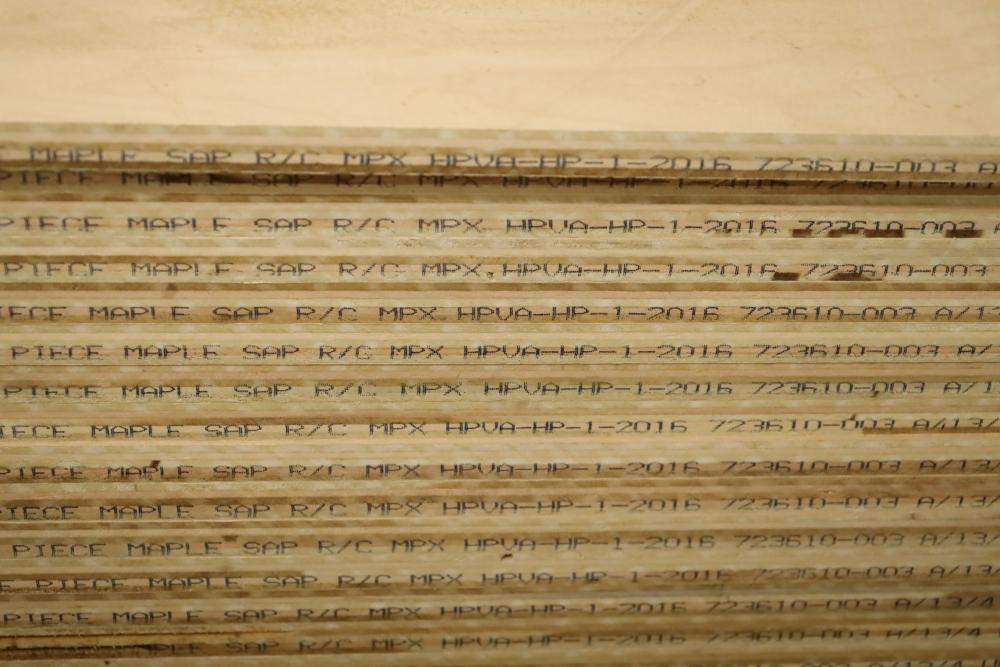 MAPLE SAP R/C MPX HPVA-HP-1-2016 723610-003 A
PIECE MAPLE SAP R/C MPX HPVA-HP-1-2016 723610-003
PIECE MAPLE SAP R/C MPX HPVA-HP-1-2016 723610-003
PIECE MAPLE SAP R/C MPX HPVA-HP-1-2016 723610-003
IECE MAPLE SAP R/C MPX HPVA-HP-1-2016 723610-003 A/13
PIECE MAPLE SAP R/C MPX HPVA-HP-1-2016 723610-003 A/
PIECE MAPLE SAP R/C MPX HPVA-HP-1-2016 723610-003 A/1
IECE MAPLE SAP R/C MPX HPVA-HP-1-2016 723610-003 A/13/
PIECE MAPLE SAP R/C MPX HPVA-HP-1-2016 723610-003 A/13/
IECE MAPLE SAP R/C MPX HPVA-HP-1-2016 723610-003 A/13/
PIECE MAPLE SAP R/C MPX HPVA-HP-1-2016 723610-003 A/13/
E PIECE MAPLE SAP R/C MPX HPVA-HP-1-2016 723610-003 A/13/
PIECE MAPLE SAP R/C MPX HPVA-HP-1-2016 723610-003 A/13/4
MAPLE SAP R/C MPX HPVA-HP-1-2016 723610-003 A/13/4